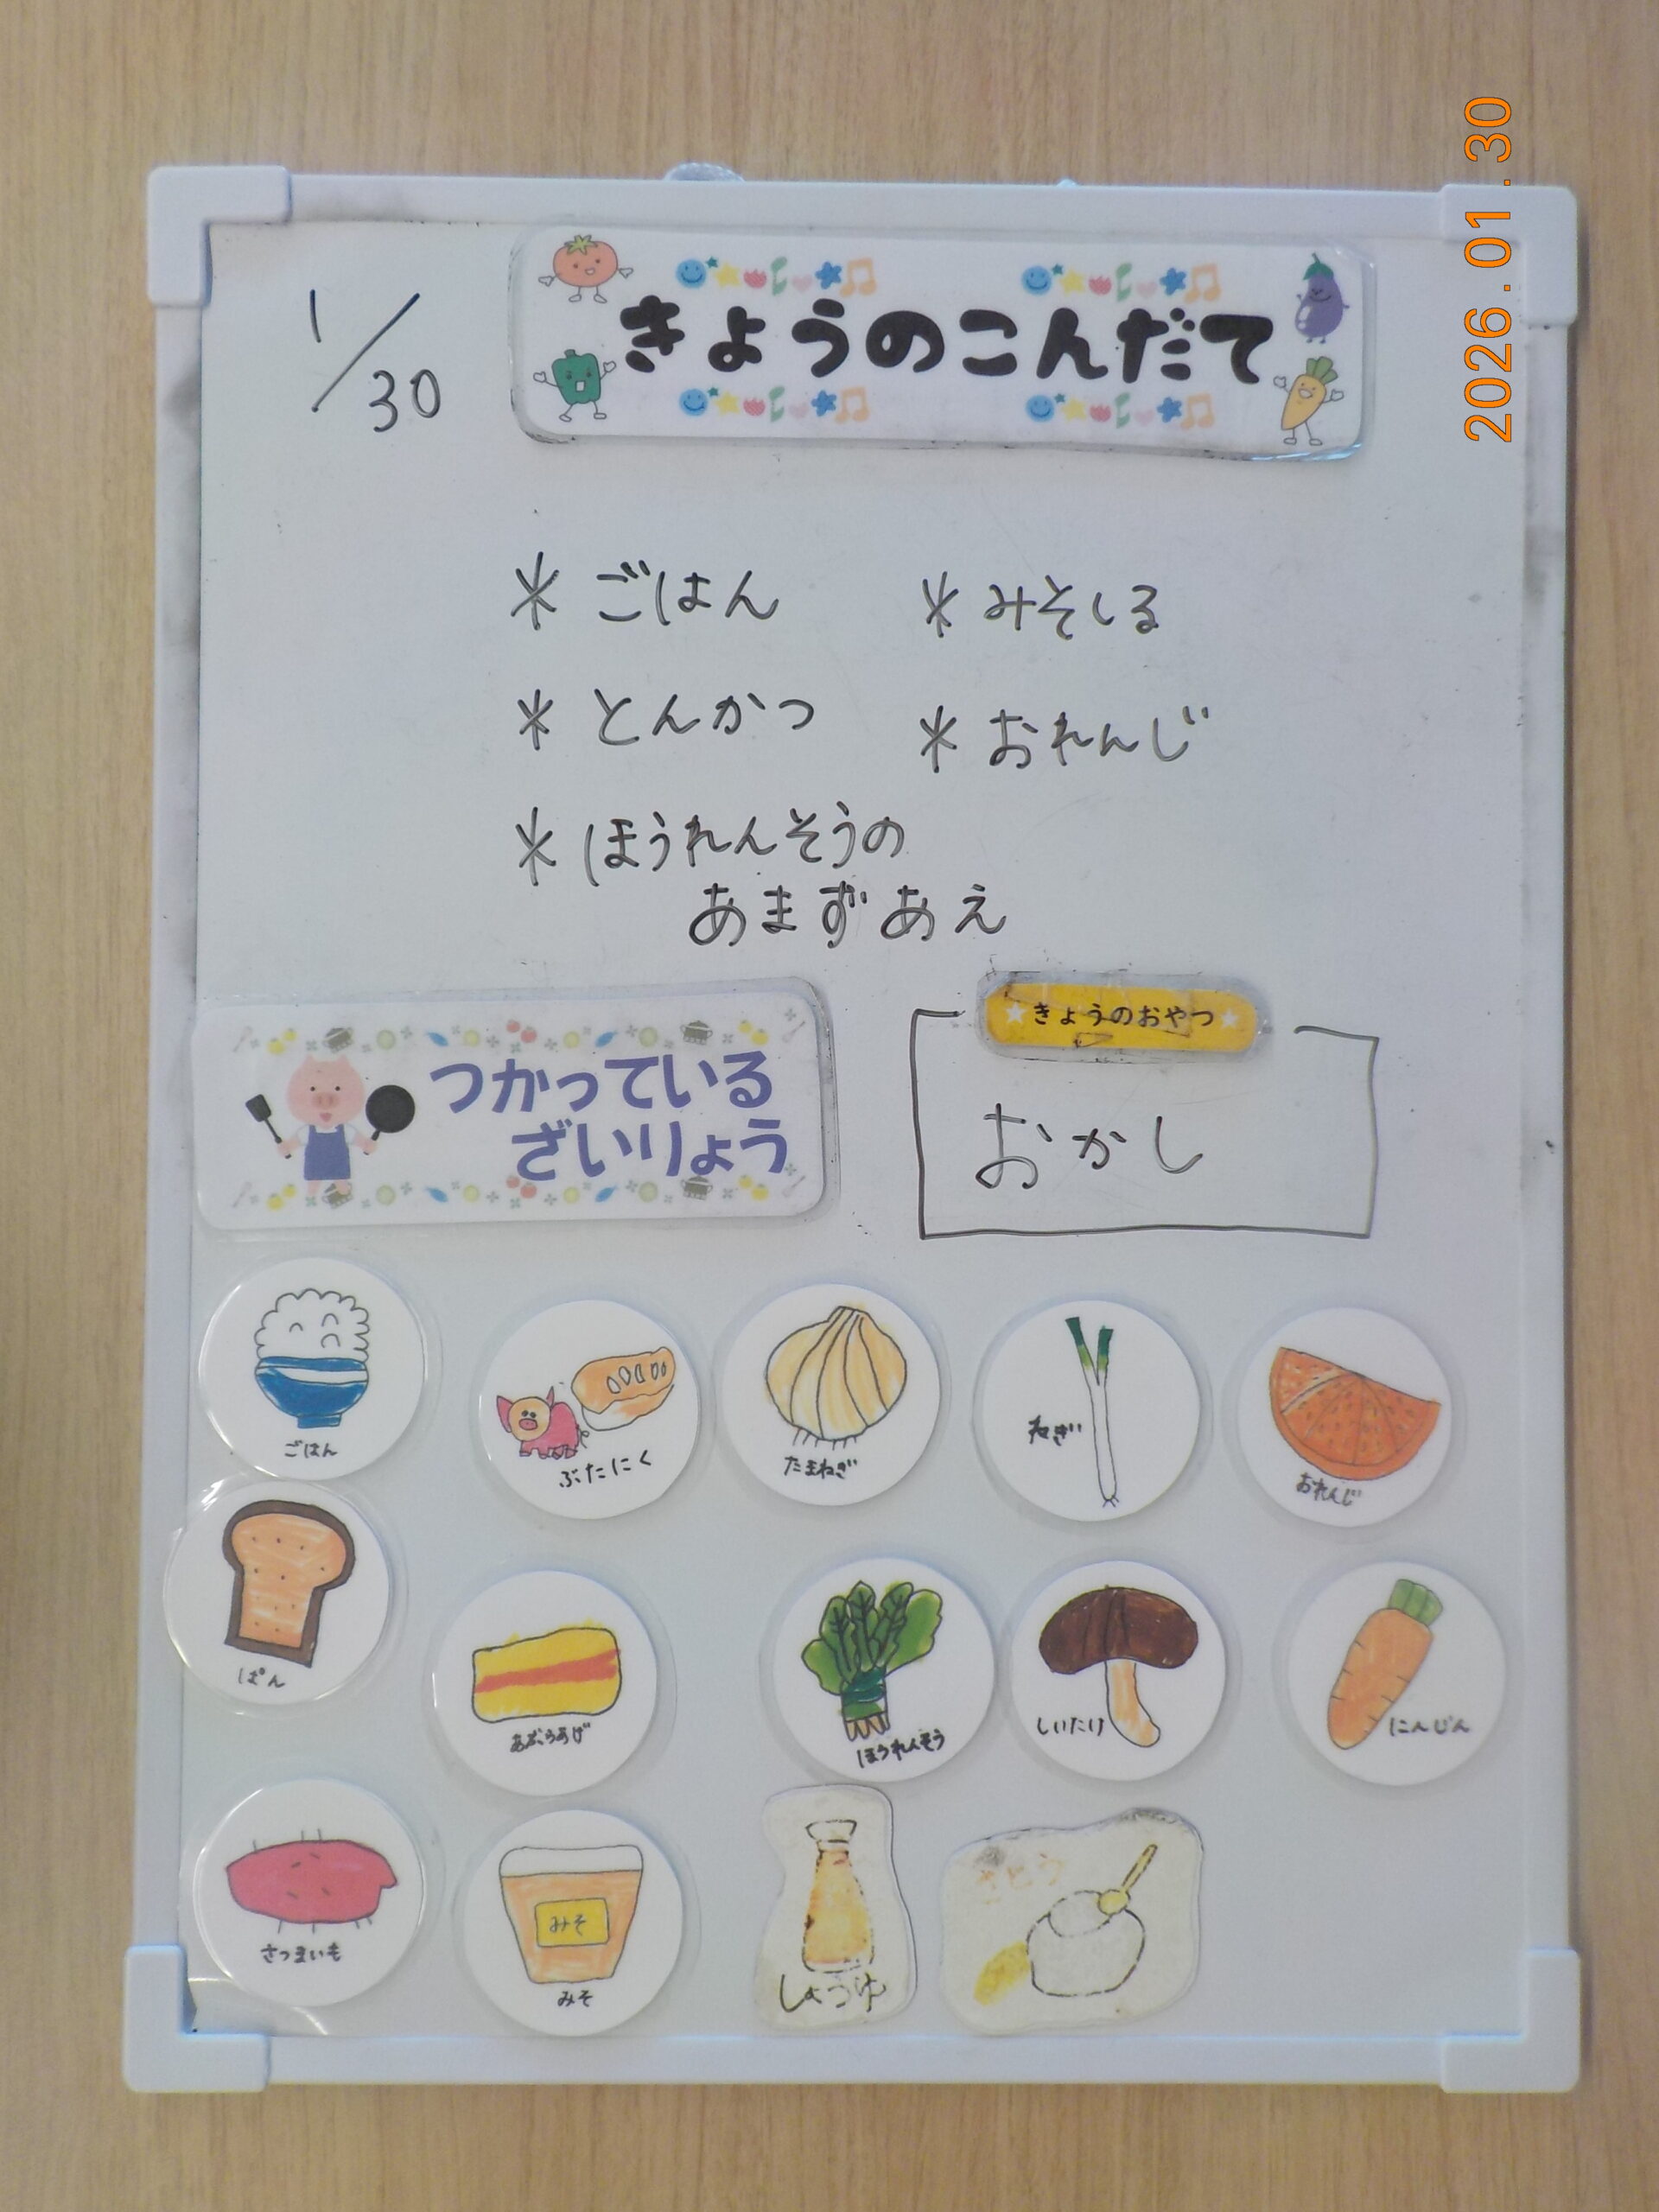 2026.01.30
1/30
きょうのこんだて
* ごはん
* とんかつ
* ほうれんそうの
あまずあえ
* みそしる
* おれんじ
つかっている
ざいりょう
きょうのおやつ
おかし
ごはん
ぶたにく
たまねぎ
ねぎ
おれんじ
ぱん
あぶらあげ
ほうれんそう
しいたけ
にんじん
さつまいも
みそ
みそ
しょうゆ
さとう